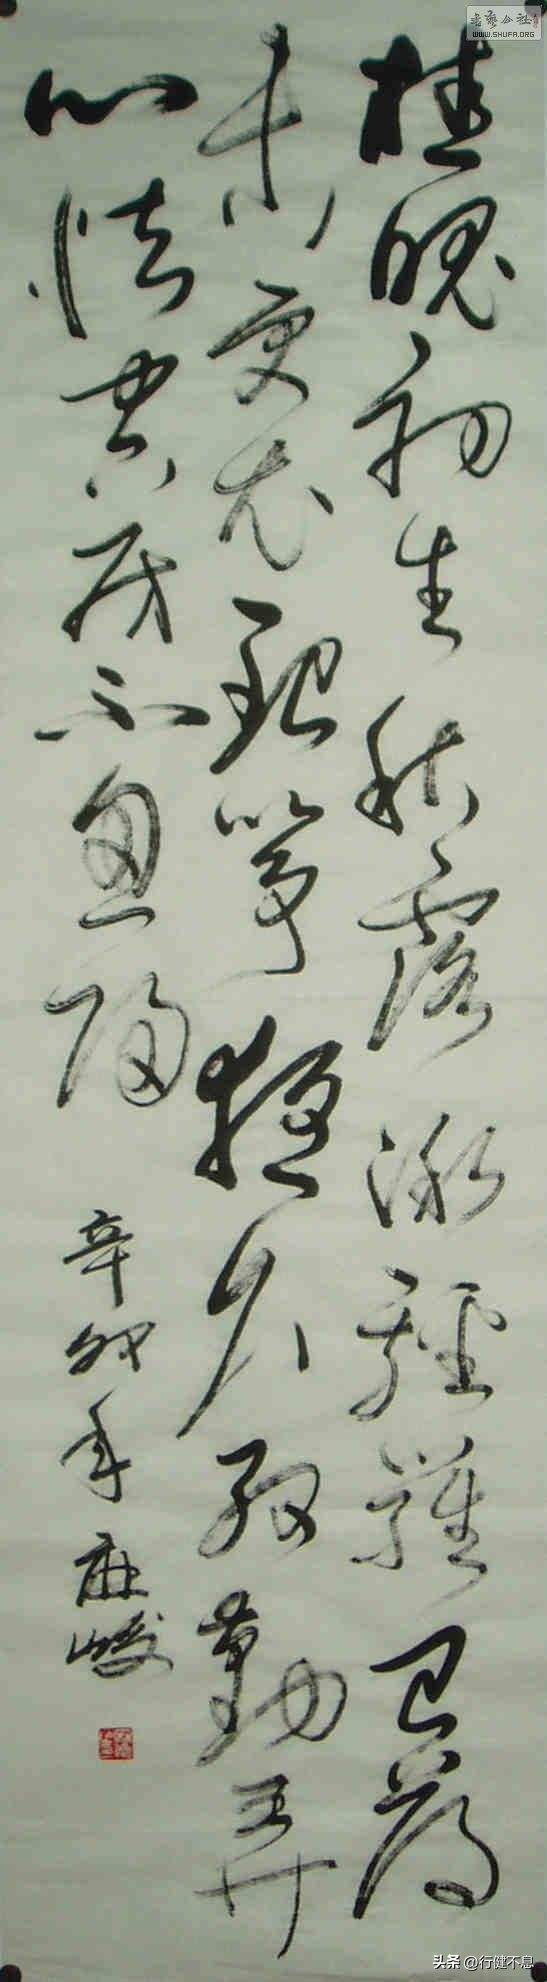 桂魄初生秋露微轻罗已薄
未更衣银筝夜久殷勤弄
心怯空房不忍归
辛卯年
書法公社
WWW.SHUFA.ORG
头条 @行健不息